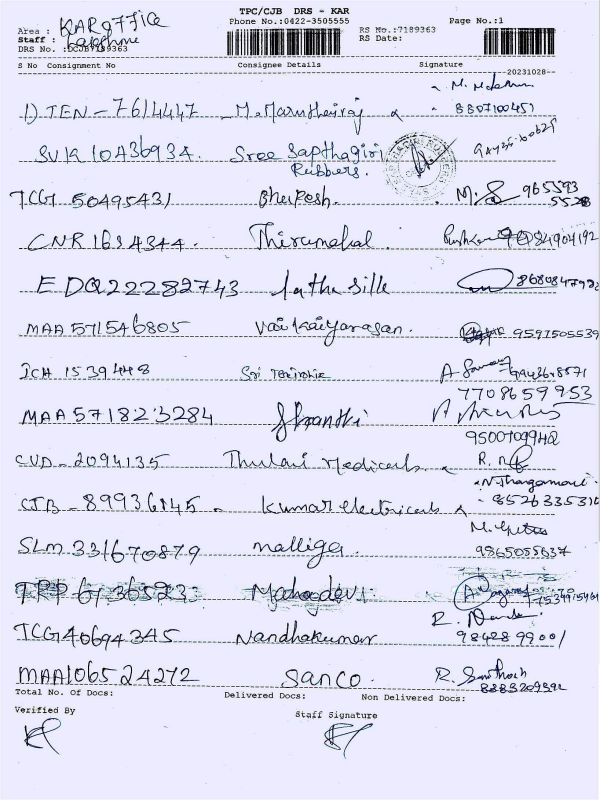 TPC/CJB DRS - KAR
Phone No.:0422-3505555 Page No.:1
Area : KAR office
Staff : Lakshmi
RS No.:7189363
RS Date:
DRS No. :DCJB7189363
S No Consignment No Consignee Details Signature
20231028--
1) TEN - 7614447 M. Marutheiraj 8807100451
SVK 10A36934. Sree Sapthagiri
Rubbers.
TCG 50495431 Bhupesh. 965593
5528
CNR 1634344. Thirumahal.
EDQ22282743 Latha Silk 8680847932
MAA 571546805 Vaikaiyarasan. 9597505539
ICH 1539448 Sri
7708659953
MAA571823284 Shanthi
9500709942
CVD - 2094135 Thulasi Medicals
CJB - 89936145 Kumar electricals
8526335316
SLM 331670879 Malliga. 9865055637
TRP 61736523 Mahadevi
TCG40694345 Nandhakumar 9842899001
MAA106524272 Sanco. R. Santhosh
8883209392
Total No. Of Docs: Delivered Docs: Non Delivered Docs:
Verified By
Staff Signature